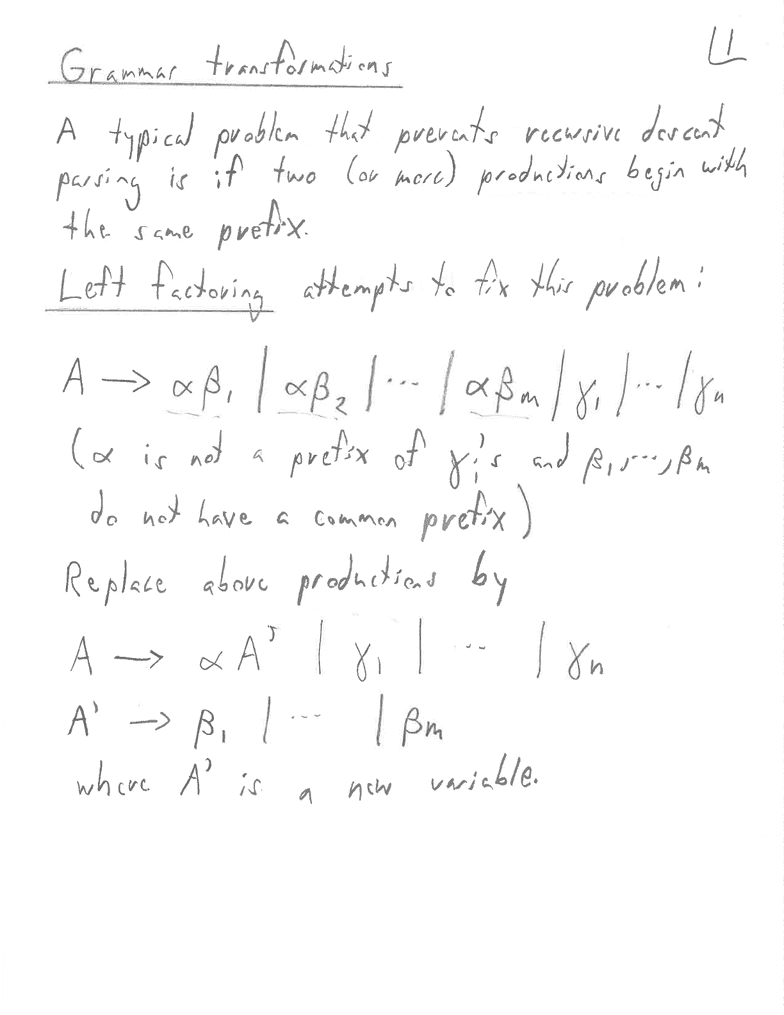 1
Grammar transformations
A typical problem that prevents recursive descent
parsing is if two (or more) productions begin with
the same prefix.
Left factoring attempts to fix this problem:
A → αβ₁ | αβ₂ | ... | αβm | γ₁ | ... | γn
(α is not a prefix of γᵢ's and β₁, ..., βm
do not have a common prefix)
Replace above productions by
A → αA' | γ₁ | ... | γn
A' → β₁ | ... | βm
where A' is a new variable.